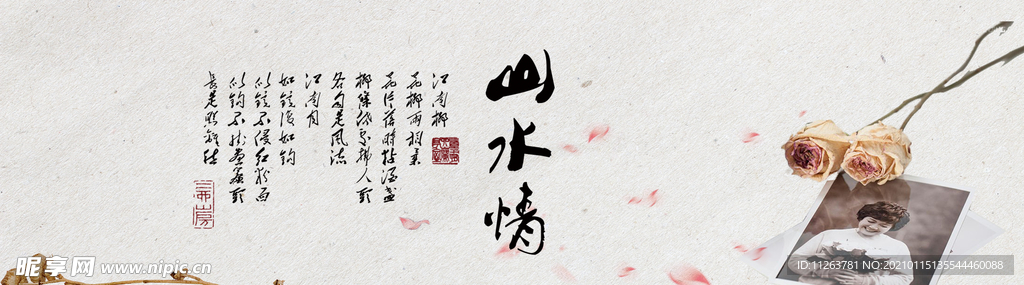 山水情
江南柳
花柳兩相柔
花片落時黏酒盞
柳條低處拂人頭
各自是風流
江南月
如鏡復如鉤
似鏡不侵紅粉面
似鉤不掛畫簾頭
長是照離愁
昵享网 www.nipic.cn
ID:11263781 NO:20210115135544460088